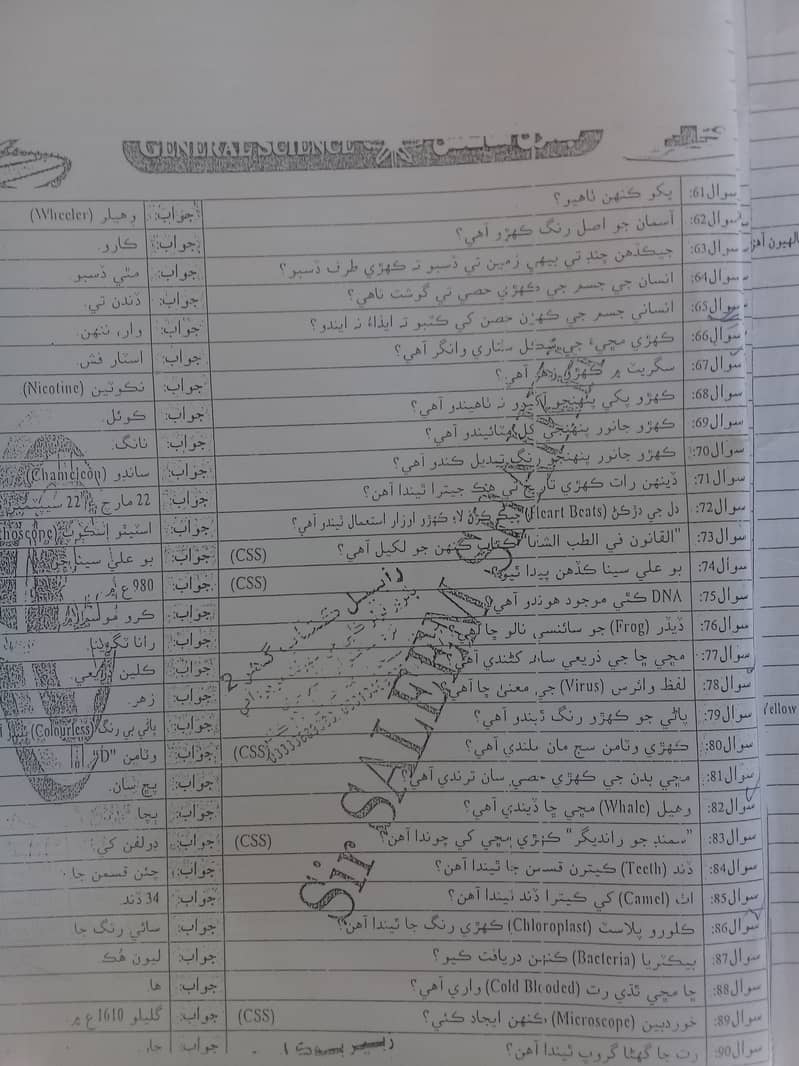 GENERAL SCIENCE
سوال61: پکو ڪنهن ٺاهيو؟ جواب: وهيلر (Wheeler)
سوال62: آسمان جو اصل رنگ ڪهڙو آهي؟ جواب: ڪارو.
سوال63: جيڪڏهن چنڊ تي بيهي زمين تي ڏسبو تہ ڪهڙي طرف ڏسبو؟ جواب: مٿي ڏسبو.
سوال64: انسان جي جسم جي ڪهڙي حصي تي گوشت ناهي؟ جواب: ڏندن تي.
سوال65: انساني جسم جي ڪهڙن حصن کي ڪٽبو تہ ايذاءُ نہ ايندو؟ جواب: وار، ننهن.
سوال66: ڪهڙي مڇيءَ جي ستاري وانگر آهي؟ جواب: اسٽار فش.
سوال67: سگريٽ ۾ ڪهڙو زهر آهي؟ جواب: نڪوٽين (Nicotine)
سوال68: ڪهڙو پکي پنهنجو نہ ٺاهيندو آهي؟ جواب: ڪوئل.
سوال69: ڪهڙو جانور پنهنجي کل مٽائيندو آهي؟ جواب: نانگ.
سوال70: ڪهڙو جانور پنهنجو رنگ تبديل ڪندو آهي؟ جواب: سانڊو (Chameleon)
سوال71: ڏينهن رات ڪهڙي تاريخ تي هڪ جيترا ٿيندا آهن؟ جواب: 22 مارچ ۽ 22 سيپٽمبر
سوال72: دل جي ڌڙڪڻ (Heart Beats) چيڪ ڪرڻ لاءِ ڪهڙو اوزار استعمال ٿيندو آهي؟ جواب: اسٽيٿو اسڪوپ
سوال73: "القانون في الطب الشفا" ڪتاب ڪنهن جو لکيل آهي؟ (CSS) جواب: بو علي سينا جو
سوال74: بو علي سينا ڪڏهن پيدا ٿيو؟ (CSS) جواب: 980ع ۾
سوال75: DNA ڪٿي موجود هوندو آهي؟ جواب: ڪرو
سوال76: ڏيڏر (Frog) جو سائنسي نالو ڇا آهي؟ جواب: رانا ٽگرينا.
سوال77: مڇي ڇا جي ذريعي ساهہ کڻندي آهي؟ جواب: گلين ذريعي.
سوال78: لفظ وائرس (Virus) جي معنيٰ ڇا آهي؟ جواب: زهر.
سوال79: پاڻي جو ڪهڙو رنگ ٿيندو آهي؟ جواب: پاڻي بي رنگ (Colourless)
سوال80: ڪهڙي وٽامن سج مان ملندي آهي؟ (CSS) جواب: وٽامن "D"
سوال81: مڇي بدن جي ڪهڙي حصي سان ترندي آهي؟ جواب: پڇ سان.
سوال82: وهيل (Whale) مڇي ڇا ڏيندي آهي؟ جواب: ٻچا
سوال83: "سمنڊ جو رانديگر" ڪهڙي مڇي کي چوندا آهن؟ (CSS) جواب: ڊولفن کي
سوال84: ڏند (Teeth) ڪيترن قسمن جا ٿيندا آهن؟ جواب: چئن قسمن جا.
سوال85: اٺ (Camel) کي ڪيترا ڏند ٿيندا آهن؟ جواب: 34 ڏند
سوال86: ڪلورو پلاسٽ (Chloroplast) ڪهڙي رنگ جا ٿيندا آهن؟ جواب: سائي رنگ جا
سوال87: بيڪٽريا (Bacteria) ڪنهن دريافت ڪيو؟ جواب: ليون هُڪ
سوال88: ڇا مڇي ٿڌي رت (Cold Blooded) واري آهي؟ جواب: ها.
سوال89: خوردبين (Microscope) ڪنهن ايجاد ڪئي؟ (CSS) جواب: گليلو 1610ع ۾
سوال90: رت جا گهڻا گروپ ٿيندا آهن؟ جواب: چار
Sir SALEEM
Yellow